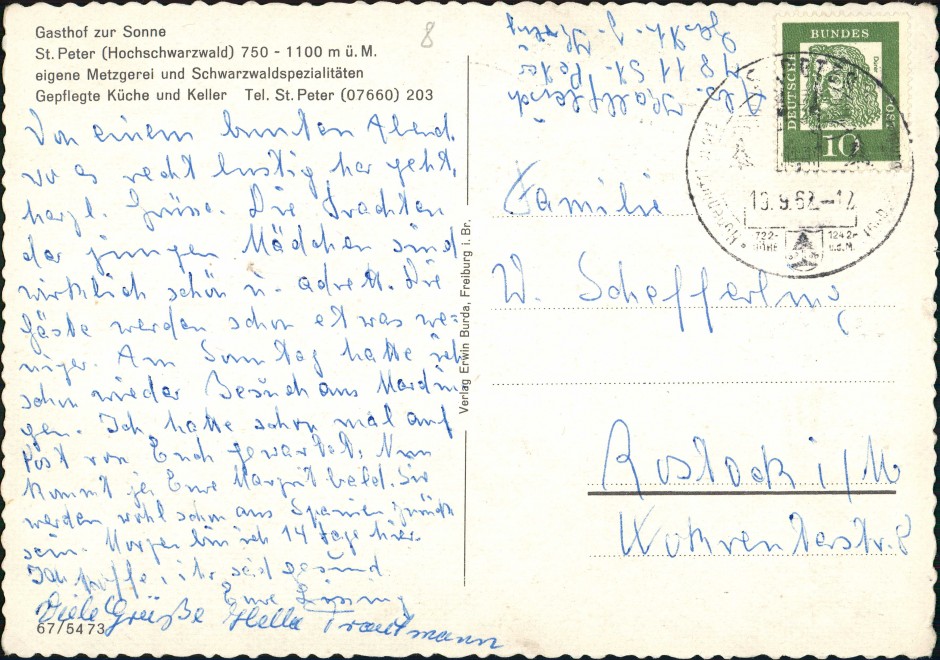 Gasthof zur Sonne
St. Peter (Hochschwarzwald) 750 - 1100 m ü. M.
eigene Metzgerei und Schwarzwaldspezialitäten
Gepflegte Küche und Keller Tel. St. Peter (07660) 203
8
Von einem bunten Abend,
wo es recht lustig her geht,
herzl. Grüße. Die Trachten
der jungen Mädchen sind
wirklich schön u. adrett. Die
Gäste werden schon etwas we=
niger. Am Sonntag hatte ich
schon wieder Besuch aus
gen. Ich hatte schon mal auf
Post von Euch gewartet. Nun
kommt ja Eure Margrit bald. Sie
werden wohl schon aus Spanien zurück
sein. Morgen bin ich 14 Tage hier.
Ich hoffe, ihr seid gesund.
Eure
Viele Grüße Hella Trautmann
67/5473
Verlag Erwin Burda, Freiburg i. Br.
7811 St. Peter
DEUTSCHE BUNDES
10
13.9.62.-17
722-
HÖHE
1242-
ü.d.M.
Familie
W. Schefferling
Rostock i/M
Wokrenterstr. 8